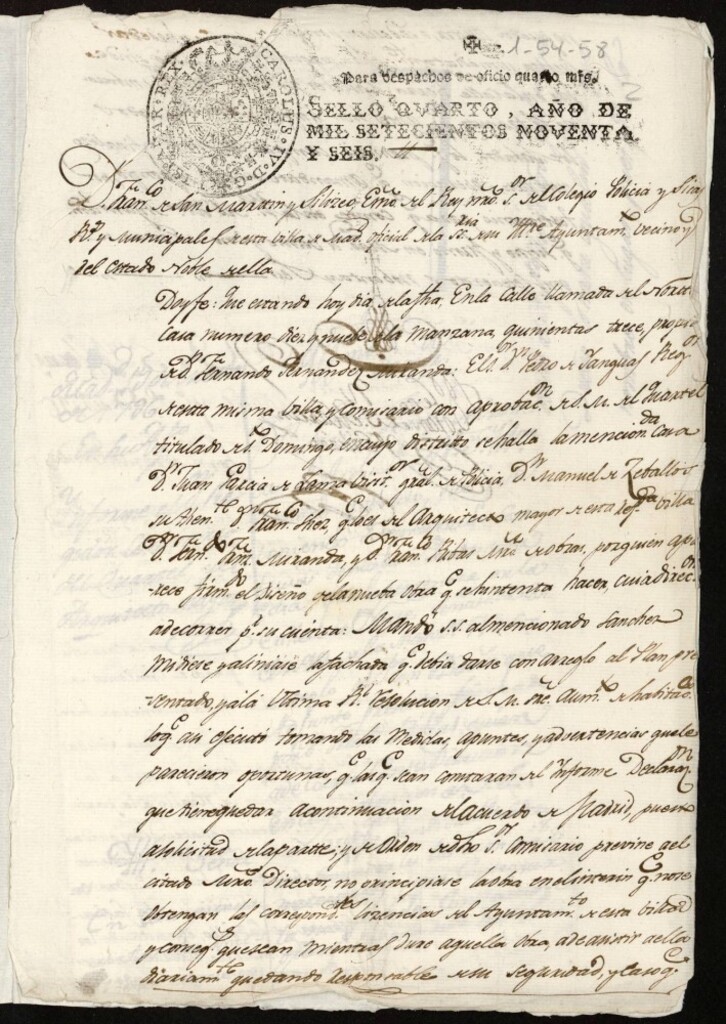 1-54-58
Para despachos de oficio quatro mrs.
SELLO QVARTO, AÑO DE
MIL SETECIENTOS NOVENTA
Y SEIS.
CAROLUS IV D G HISPANIAR REX
Dn. Franco. de San Martin y Silizeo, Esno. del Rey nro. Sr. del Colegio Policia y
Rs. y Municipales de esta villa de Mad. oficial de la Sria. de su Iltre Ayuntamto. vecino y
del estado Noble de ella
Doy fe: que estando hoy dia de la fha. En la Calle llamada del Norte
Casa numero diez y nuebe de la manzana quinientas trece, propio
de Dn. Fernando Fernandez Miranda: El Sr. Dn. Pedro de Yanguas Regor.
de esta misma villa, y Comisario con aprobacon. de S. M. del Quartel
titulado de Sto. Domingo, en cuyo distrito se halla la mencionda. Casa
Dn. Juan Garcia de Lanza visitor. gral. de Policia, Dn. Manuel de Zeballos
su thente. Dn. Franco. Shez, qe. lo es del Arquitecto mayor de esta refda. villa
Dn. Fern. Fern. Miranda, y Dn. Franco. Ribas Mro. de obras, por quien apa-
-rece firmdo. el Diseño de la nueba obra qe. se hintenta hacer, cuia direcon.
a de correr pr. su cuenta: Mandó S.S. al mencionado Sanchez
midiese y aliniase la fachada qe. debia darse con arreglo al Plan pre-
-sentado, y a la Ultima Rl. resolucion de S. M. sre. aumto. de habitacs.
lo qe. asi ejecutó tomando las Medidas, apuntes, y advertencias que le
parecieron oportunas, qe. las qe. sean constaran del Informe Declaracon.
que tiene que dar a continuacion del acuerdo de Madrid, puesto
a solicitud de la parte; y de orden de dho Sr. Comisario previne a el
citado Mro. Director, no principiase la obra en el interin qe. no se
obtengan las correspondtes. licencias del Ayuntamto. de esta villa
y conseg. que sean mientras dure aquella obra, a de asistir a ella
diariamte. quedando responsable de su seguridad, y caso qe.